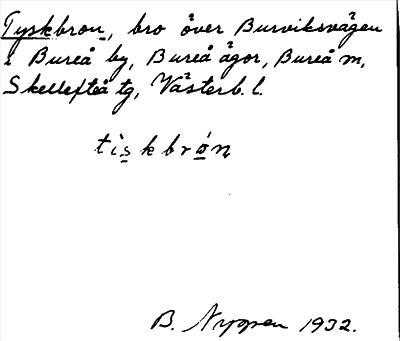 Tyskbron, bro över Burviksvägen
i Bureå by, Bureå ägor, Bureå m,
Skellefteå tg, Västerb. l.
tiskbrón
B. Nyppen 1932.